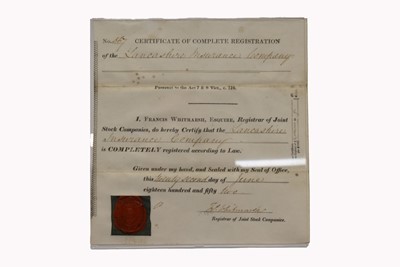 CERTIFICATE OF COMPLETE REGISTRATION
of the Lancashire Insurance Company
Pursuant to the Act 7 & 8 Vict., c. 110.
I, FRANCIS WHITMARSH, ESQUIRE, Registrar of Joint
Stock Companies, do hereby Certify that the Lancashire
Insurance Company
is COMPLETELY registered according to Law.
Given under my hand, and Sealed with my Seal of Office,
this twenty second day of June
eighteen hundred and fifty two
Registrar of Joint Stock Companies.